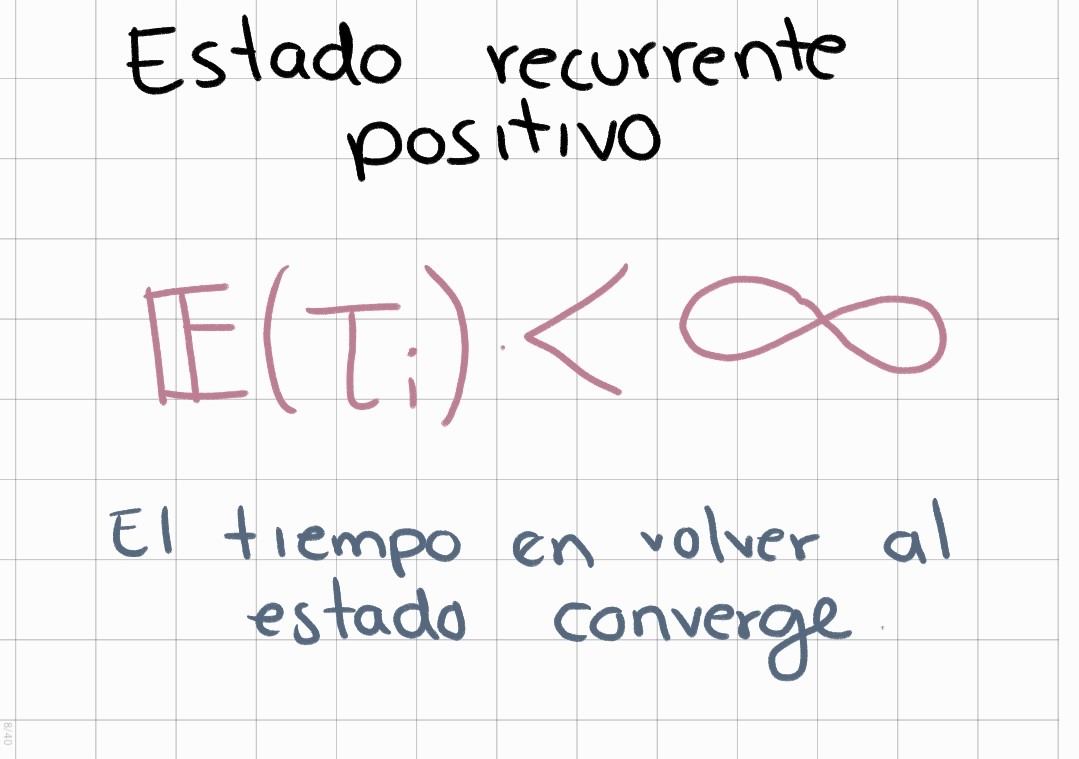 Estado recurrente
positivo
𝔼(τᵢ) < ∞
El tiempo en volver al
estado converge.
8/40